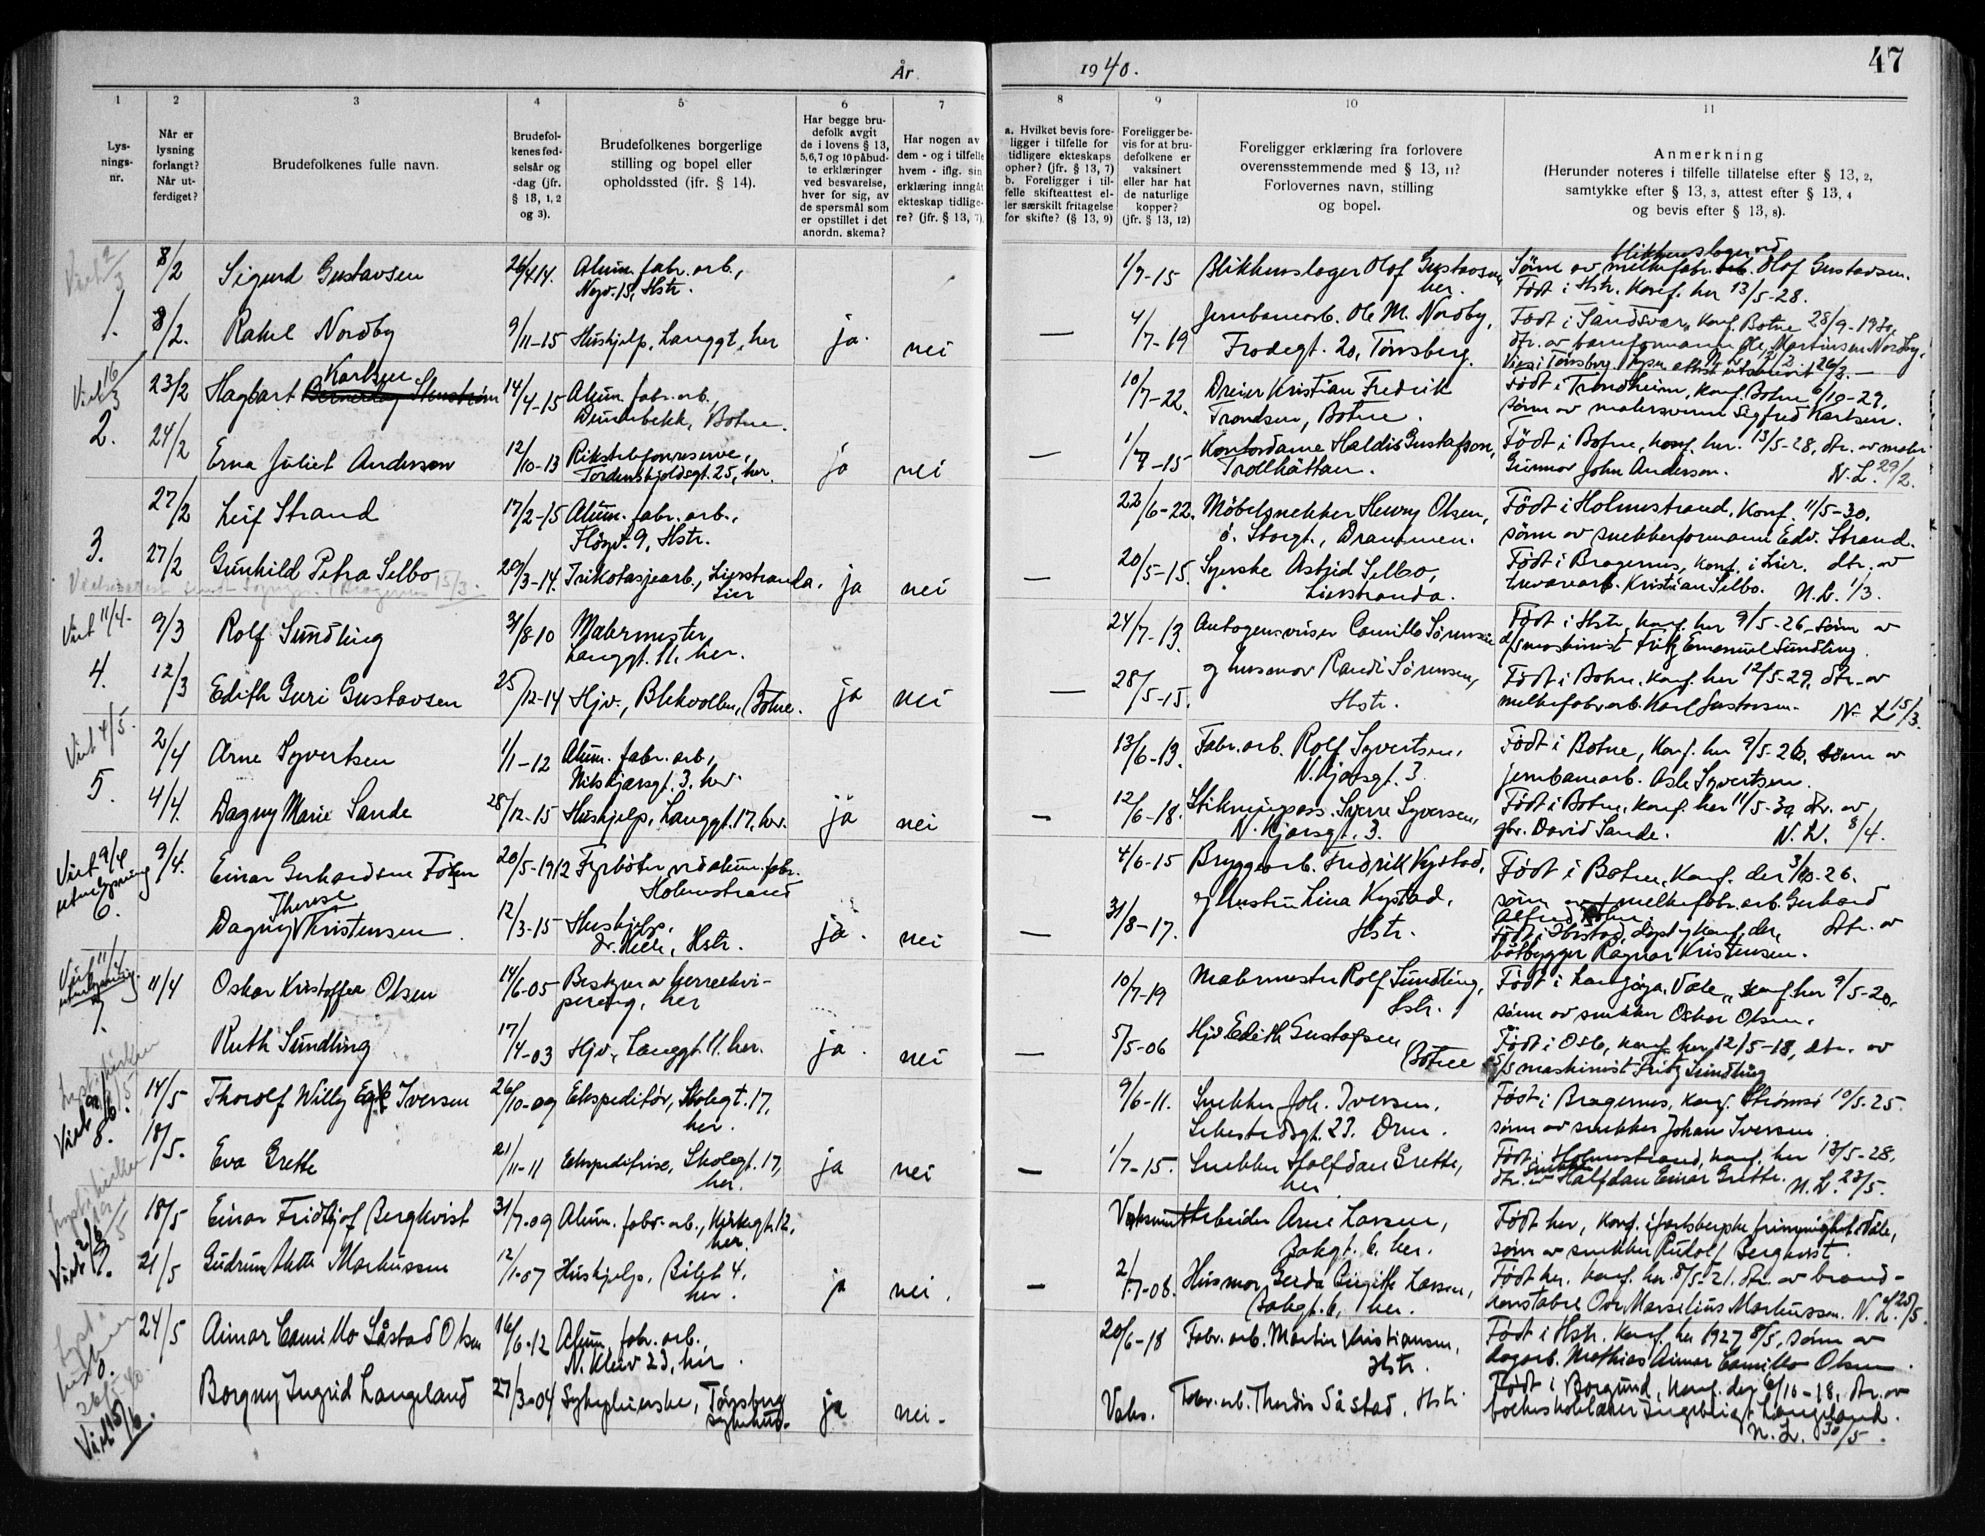 År 1940.
47
1 2 3 4 5 6 7 8 9 10 11
Lysnings-
nr.
Når er
lysning
forlangt?
Når ut-
ferdiget?
Brudefolkenes fulle navn.
Brudefol-
kenes fød-
selsår og
-dag (jfr.
§ 13, 1, 2
og 3).
Brudefolkenes borgerlige
stilling og bopel eller
opholdssted (ifr. § 14).
Har begge bru-
defolk avgit
de i lovens § 13,
5,6,7 og 10 påbud-
te erklæringer
ved besvarelse,
hver for sig, av
de spørsmål som
er opstillet i det
anordn. skema?
Har nogen av
dem - og i tilfelle
hvem - iflg. sin
erklæring inngåt
ekteskap tidlige-
re? (jfr. § 13, 7).
a. Hvilket bevis fore-
ligger i tilfelle for
tidligere ekteskaps
ophør? (jfr. § 13, 7)
b. Foreligger i til-
felle skifteattest el-
ler særskilt fritagelse
for skifte? (§ 13, 9)
Foreligger be-
vis for at bru-
defolkene er
vaksinert
eller har hat
de naturlige
kopper?
(jfr. § 13, 12)
Foreligger erklæring fra forlovere
overensstemmende med § 13, 11?
Forlovernes navn, stilling
og bopel.
Anmerkning
(Herunder noteres i tilfelle tillatelse efter § 13, 2,
samtykke efter § 13, 3, attest efter § 13, 4
og bevis efter § 13, 8).
Viet 2/3 8/2 Sigurd Gustavsen 26/4 14. Alum. fabr. arb., 1/7-15 Blikkenslager Olof Gustavsen, her. Sønn av blikkenslager ved melkefabr. arb. Olof Gustavsen.
Hstr. Født i Hstr. Konf. her 13/5-28.
1. 8/2. Rakel Nordby 9/11-15 Hushjelp, Langgt, her ja. nei — 4/7-19 Jernbanearb. Ole M. Nordby, Født i Sandsvær, konf. Botne 28/9-1930,
Frodegt. 20, Tønsberg. dtr. av baneformann Ole Martinsen Nordby.
Viet 16/3 23/2 Hagbart Karlsen 14/4-15 Alum. fabr. arb. 10/7-22. Dreier Kristian Fredrik Født i Trondheim, konf. Botne 6/10-29,
Botne. Trondsen, Botne. sønn av malersvenn Sigfred Karlsen.
2. 24/2 Erna Juliet Anderson 12/10-13 Rikstelefonreserve, ja nei — 1/7-15 Kontordame Haldis Gustafson, Født i Botne, konf. her. 13/5-28, dtr. av
Tordenskjoldsgt. 25, her. Trollhättan. Gunnar John Anderson. N.L. 29/2.
27/2 Leif Strand 17/2-15 Alum. fabr. arb., 22/6-22. Møbelsnekker Henry Olsen, Født i Holmestrand. Konf. 11/5-30,
9, Hstr. ø. Storgt., Drammen. sønn av snekkerformann Edv. Strand.
3. 27/2 Gunhild Petra Selbo 29/3-14. Trikotasjearb., Lierstranda. ja nei — 20/5-15. Syerske Astrid Selbo, Født i Bragernes, konf. i Lier. dtr. av
Lier Lierstranda. Kristian Selbo. N.L. 1/3.
Viet 11/4- 9/3 Rolf Sundling 31/8-10 Malermester 24/7-13. Autogensveiser Camillo Sørensen Født i Hstr, konf. her 9/5-26, sønn av
Langgt. 11, her. d/s maskinist Fritz Emanuel Sundling.
4. 12/3 Edith Guri Gustavsen 25/12-14 Hjv., Blekvollen, Botne. ja nei — 28/5-15. g husmor Randi Sørensen, Født i Botne, konf. her 12/5-29, dtr. av
Hstr. melkefabr. arb. Karl Gustavsen. N.L 15/3.
Viet 4/5. 2/4 Arne Syvertsen 1/1-12 Alum. fabr. arb, 13/6-13. Fabr. arb. Rolf Syvertsen, Født i Botne, Konf. her 9/5-26, sønn av
Nils Kjærsgt. 3. her. N. Kjærsgt. 3. jernbanearb. Asle Syvertsen.
5. 4/4. Dagny Marie Sande 28/12-15 Hushjelp, Langgt. 17, her. ja nei — 12/6-18. Syverre Syversen, Født i Botne, konf. her 11/5-30, dtr. av
N. Kjærsgt. 3. gbr. David Sande. N.L. 8/4.
Viet 9/4 9/4. Einar Gerhardsen 20/5-1912 Fyrbøter ved alum. fabr. 4/6-15 Bryggearb. Fredrik Kystad, Født i Botne, Konf. der 3/10-26.
uten lysning Holmestrand sønn av melkefabr. arb. Gerhard
6. Dagny Therese Kristensen. 12/3-15 Hushjelp, ja. nei — 31/8-17. g hustru Lina Kystad, Alfred
Hstr. Hstr. Født i Ibestad, døpt og konf. der, dtr. av
båtbygger Ragnar Kristensen.
Viet 11/4 11/4 Oskar Kristoffer Olsen 14/6-05 Bestyrer av herreekvi- 10/7-19 Malermester Rolf Sundling, Født i Våle, konf. her 9/5-20,
uten lysning. pering, her Hstr. sønn av snekker Oskar Olsen.
7. Ruth Sundling 17/4-03 Hjv., Langgt. 11. her. ja. nei — 5/5-06 Hjv Edith Gustafsen Født i Oslo, konf. her, 12/5-18, dtr. av
Botne s/s maskinist Fritz Sundling
14/5 Thorolf Willy Iversen 26/10-09 Ekspeditør, Skolegt. 17, 9/6-11. Snekker Joh. Iversen, Født i Bragernes, konf. Strømsø 10/5-25.
her. 23. Drm. sønn av snekker Johan Iversen
Viet 8. 18/5. Eva Grette 21/11-11 Ekspeditrise, Skolegt. 17, ja nei — 1/7-15. Snekker Halfdan Grette, Født i Holmestrand, konf. her 13/5-28,
her. her dtr. av snekker Halfdan Einar Grette. N.L. 23/5.
18/5 Einar Fridtjof Bergkvist 31/7-09 Alum. fabr. arb., Kirkegt. 12, Arne Larsen, Født her, konf. i Våle,
her. her. sønn av snekker Rudolf Bergkvist.
Viet 9. 21/5 Gudrun Markussen 12/1-07 Hushjelp, 4. ja nei. — 2/7-08. Husmor Gerda Birgitte Larsen, Født her, konf. her. 8/5-21. dtr. av brand-
her. her. konstabel Marselius Markussen. N.L. 25/5.
24/5 Aimar Camillo Såstad Olsen 16/6-12 Alum. fabr. arb., 20/6-18 Fabr. arb. Martin Kristiansen, Født i Hstr. konf. her 1927 8/5, sønn av
10. 23, her Hstr. dagarb. Mathias Aimar Camillo Olsen.
26/5-40. Borgny Ingrid Langeland 27/3-04 Sykepleierske, Tønsberg ja nei. Vaks. Fabr. arb. Thordis Såstad, Hstr Født i Borgund, konf. der 6/10-18, dtr. av
Viet 15/6. sykehus. Ingebrigt Langeland.
N.L. 30/5.